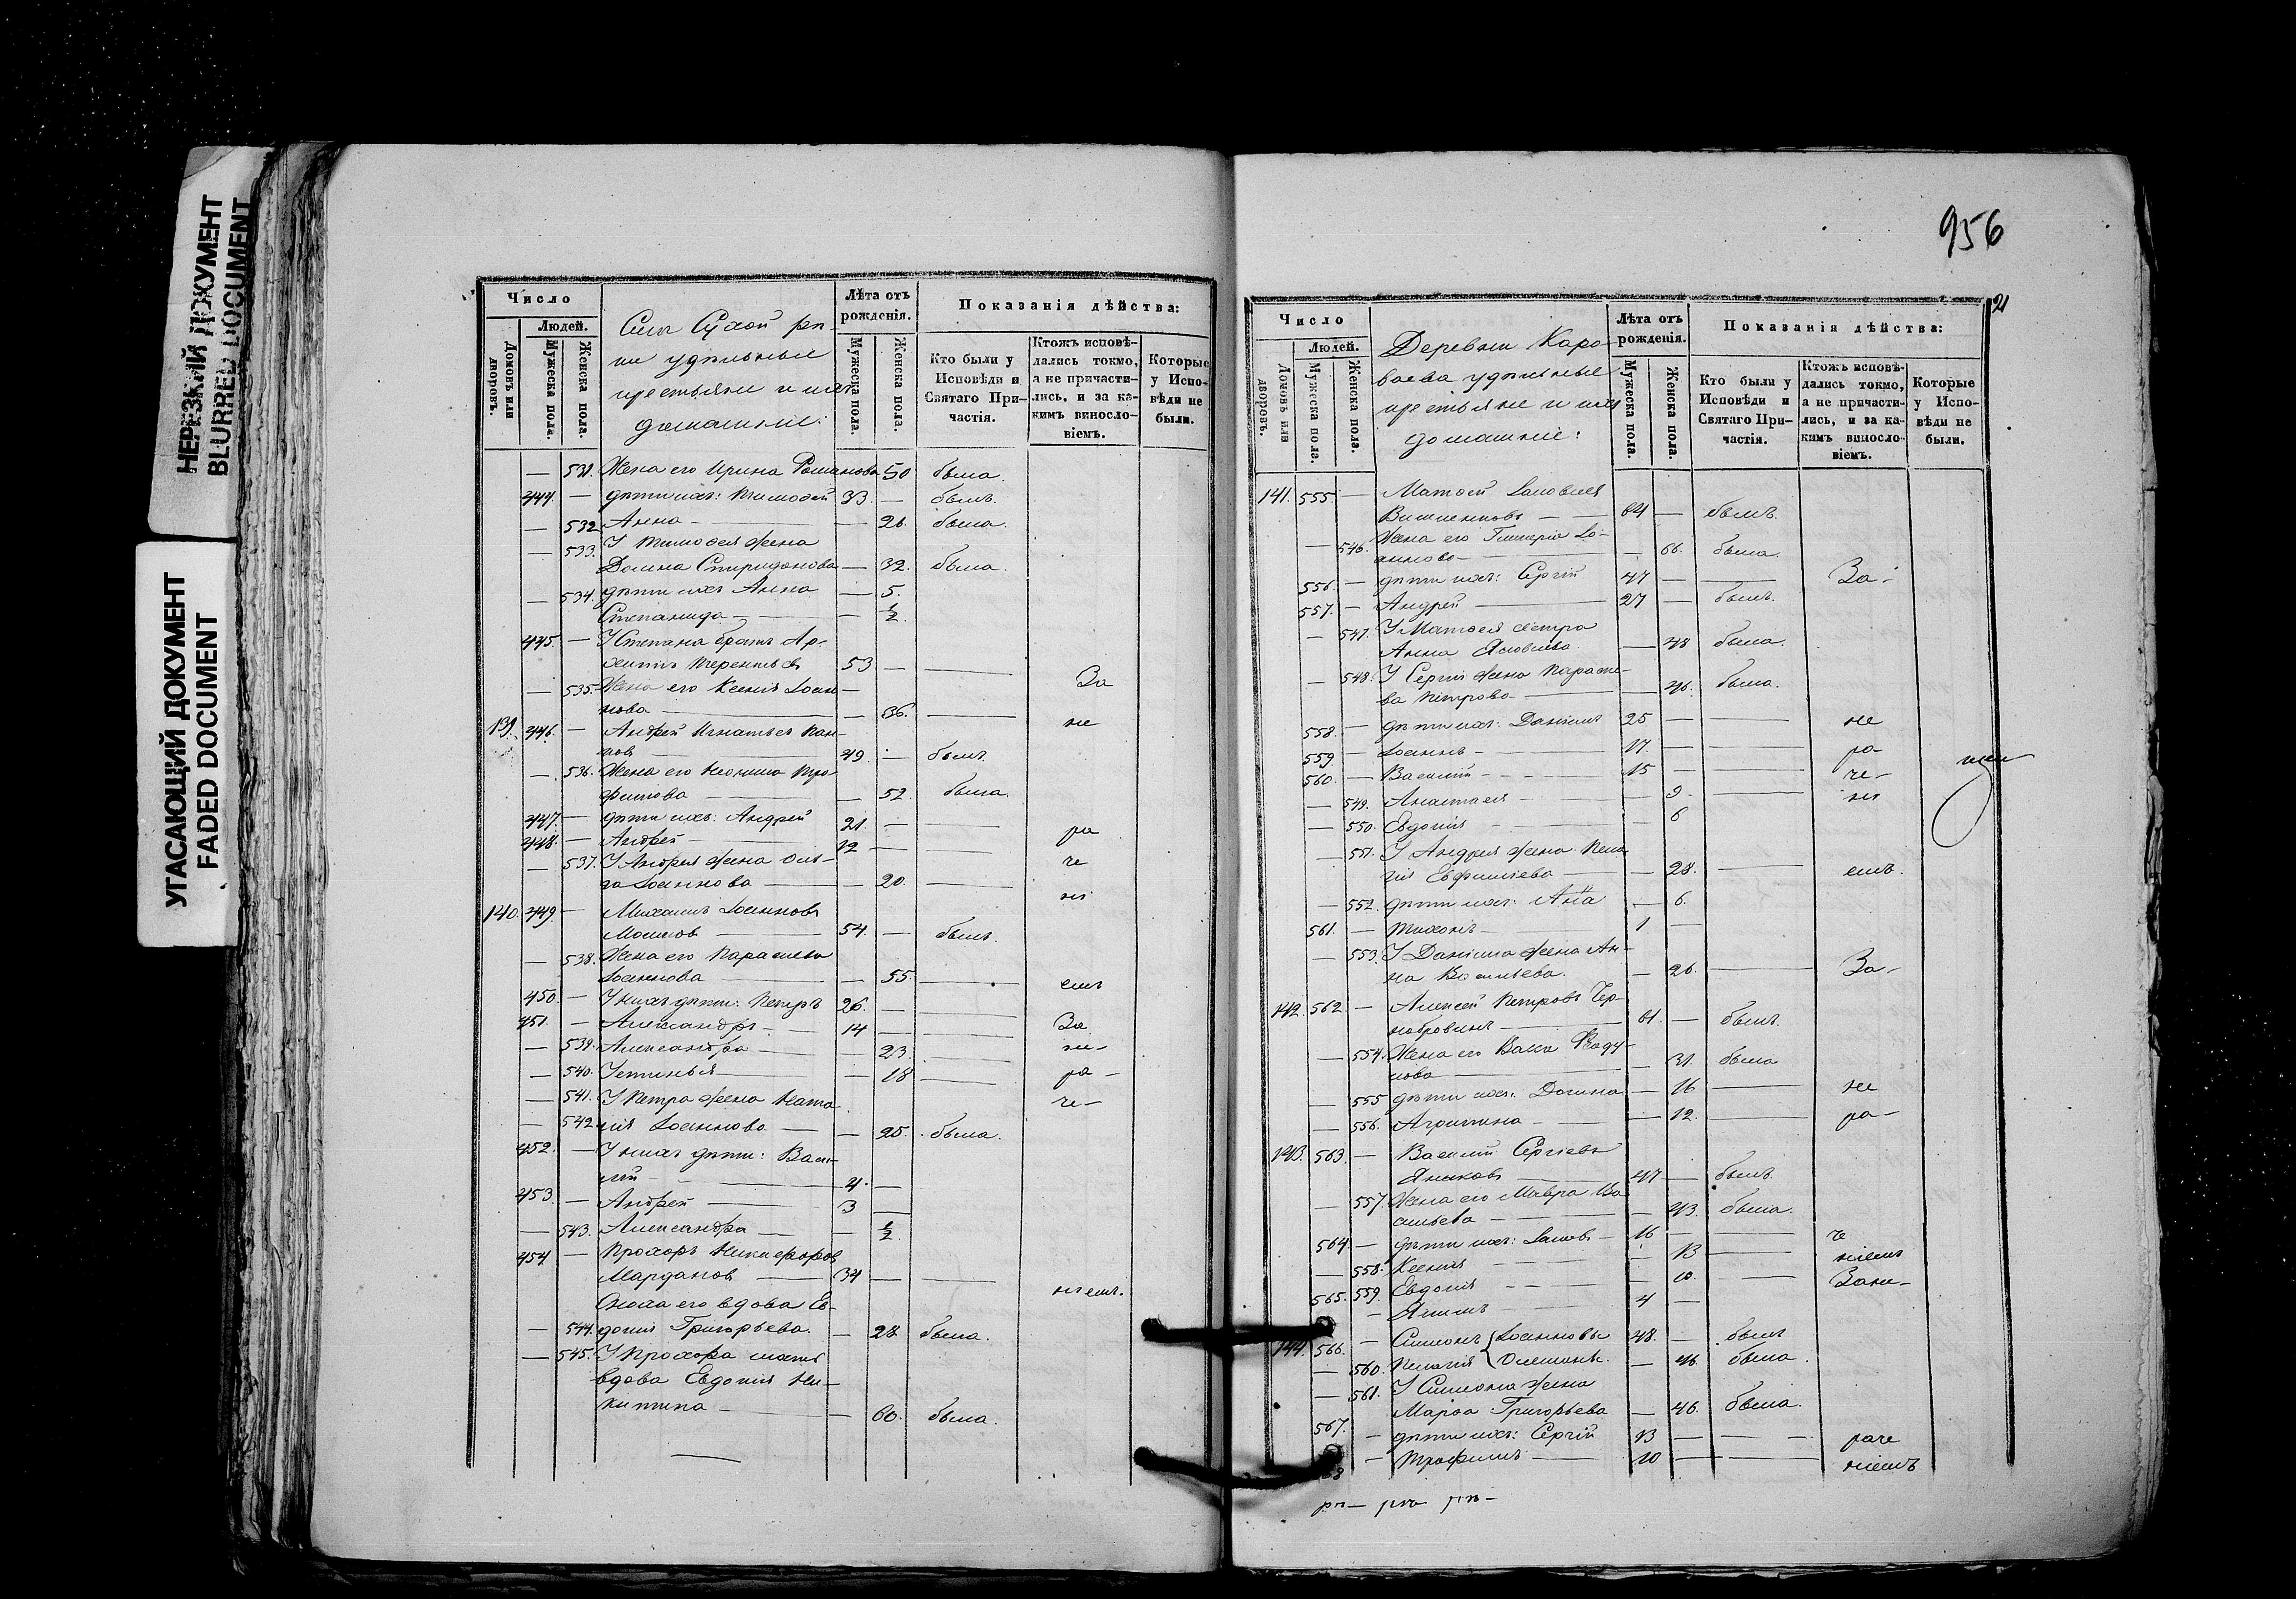 НЕРЕЗКИЙ ДОКУМЕНТ
BLURRED DOCUMENT
УГАСАЮЩИЙ ДОКУМЕНТ
FADED DOCUMENT
Число
Людей.
Домовъ или дворовъ.
Мужеска пола.
Женска пола.
Села Сухой рѣ-
ки удѣльные
крестьяне и ихъ
домашніе:
Лѣта отъ рожденія.
Мужеска пола.
Женска пола.
Показанія дѣйства:
Кто были у Исповѣди и Святаго Причастія.
Ктожъ исповѣдались токмо, а не причастились, и за какимъ винословіемъ.
Которые у Исповѣди не были.
— 531. Жена его Ирина Романова 50 была.
444. — дѣти ихъ: Тимофей 33. — былъ.
— 532 Анна — 26. была.
— 533. У Тимофея жена
Домна Спиридонова — 32. была.
— 534. дѣти ихъ Анна — 5.
Степанида — ½.
445. — У Степана братъ Ар-
хиппъ Терентьевъ 53 —
— 535. Жена его Ксенія Іоан- За
нова — 36.
139. 446. — Андрей Игнатьевъ не
49. — былъ.
— 536. Жена его
фимова — 52. была.
447. — дѣти ихъ: Андрей 21. — ра
448. — Андрей 12 —
— 537. У Андрея жена Оль- че
га Іоаннова — 20. ні
140. 449. — Михаилъ Іоанновъ
54. — былъ.
— 538. Жена его Параскева
Іоаннова — 55. емъ
450. — У нихъ дѣти: Петръ 26. —
451. — Александръ 14 — За
— 539. Александра — 23. не-
— 540. Устинья — 18 ра-
— 541. У Петра жена Ната че-
— 542 лія Іоаннова — 25. была.
452. — У нихъ дѣти: Васи-
лій 4. —
453. — Андрей 3 —
— 543. Александра — ½.
454 — Прохоръ Никифоровъ
Мардановъ 34 — ніемъ.
Сноха его вдова Ев-
— 544. докія Григорьева. — 28 была.
— 545. У Прохора мать
вдова Евдокія Ни-
китина — 60. была.
956
21
Число
Людей.
Домовъ или дворовъ.
Мужеска пола.
Женска пола.
Деревни Каро-
ваева удѣльные
крестьяне и ихъ
домашніе:
Лѣта отъ рожденія.
Мужеска пола.
Женска пола.
Показанія дѣйства:
Кто были у Исповѣди и Святаго Причастія.
Ктожъ исповѣдались токмо, а не причастились, и за какимъ винословіемъ.
Которые у Исповѣди не были.
141. 555 — Матфей Іаковлевъ
64 — былъ.
— 546. Жена его Гликерія Іо-
аннова — 66. была.
556. — дѣти ихъ: Сергій 47 — За-
557. — Андрей 27 — былъ.
— 547. У Матфея сестра
Анна Яковлева — 48 была.
— 548. У Сергія жена Параске-
ва Петрова — 46. была.
558. — дѣти ихъ: Даніилъ 25 — не
559. — Іоаннъ 17. — ра-
560. — Василій 15 — че-
— 549. Анастасія — 9. ні
— 550. Евдокія — 6
— 551. У Андрея жена Пела-
гія Евфиміева — 28. емъ.
— 552. дѣти ихъ: Анна — 6.
561. — Тихонъ 1 —
— 553. У Даніила жена Ан-
на Васильева. — 26. За-
142. 562 — Алексей Петровъ Чер-
нобровинъ 61. — былъ.
— 554. Жена его Васса
31. была
— 555 дѣти ихъ: Домна — 16 не
— 556. Агрипина — 12. ра-
143. 563. — Василій Сергіевъ
47 — былъ.
— 557. Жена его Мавра Ва-
сильева — 43. была.
564. — дѣти ихъ: Іаковъ 16 — че
— 558. Ксенія — 13 ніемъ
559. Евдокія — 10. Зане-
565. — Якимъ 4 —
144. 566. — Симеонъ Іоанновы 48. — былъ
— 560. Пелагія — 46. была.
— 561. У Симеона жена
Марфа Григорьева — 46. была.
567. — дѣти ихъ: Сергій 13 — раче
— Трофимъ 10 — ніемъ